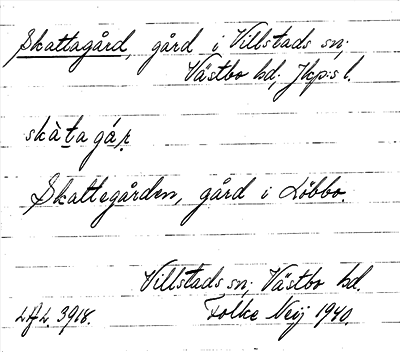 Skattagård, gård i Villstads sn;
Västbo hd, Jkp:s l.
skàta gár
Skattegården, gård i Löbbo.
Villstads sn; Västbo hd.
Folke Neij 1940.